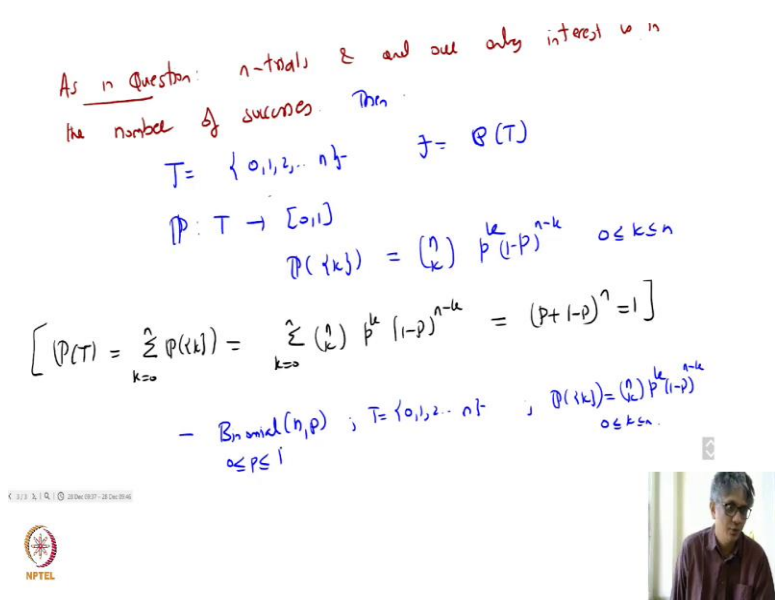 As in Question: n-trials & and our only interest is in
the number of successes. Then
T = {0,1,2,.. n} F = P(T)
P : T → [0,1]
P({k}) = (n k) p^k (1-p)^{n-k} 0 ≤ k ≤ n
[ P(T) = Σ_{k=0}^{n} P({k}) = Σ_{k=0}^{n} (n k) p^k (1-p)^{n-k} = (p+1-p)^n = 1 ]
- Binomial(n,p) ; T = {0,1,2... n} ; P({k}) = (n k) p^k (1-p)^{n-k}
0 ≤ p ≤ 1 0 ≤ k ≤ n.
NPTEL